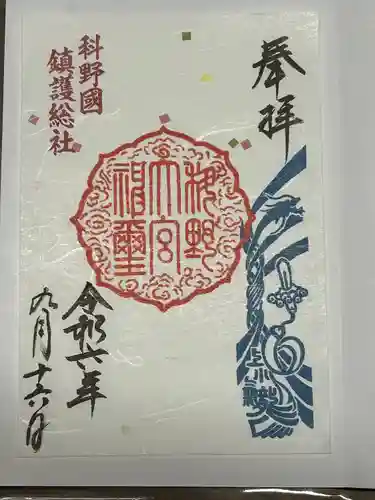 奉拝
上小
科野
大宮
神璽
科野國
鎮護総社
令和六年
九月十六日